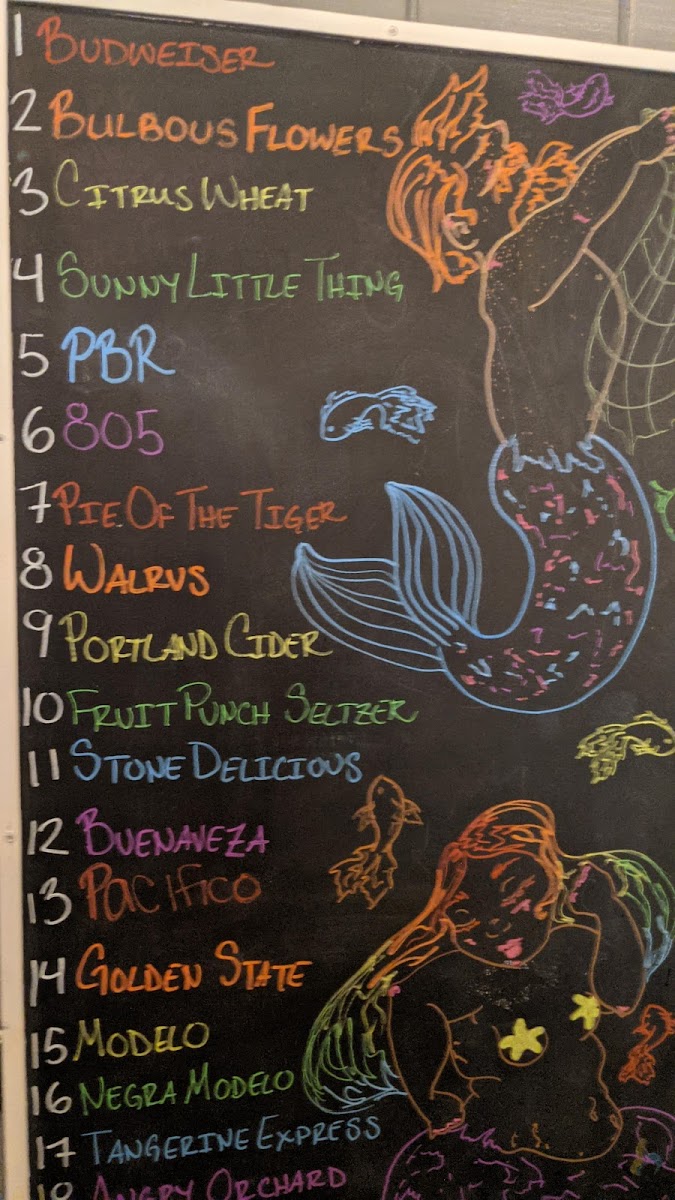 1 BUDWEISER
2 BULBOUS FLOWERS
3 CITRUS WHEAT
4 SUNNY LITTLE THING
5 PBR
6 805
7 PIE OF THE TIGER
8 WALRUS
9 PORTLAND CIDER
10 FRUIT PUNCH SELTZER
11 STONE DELICIOUS
12 BUENAVEZA
13 PACIFICO
14 GOLDEN STATE
15 MODELO
16 NEGRA MODELO
17 TANGERINE EXPRESS
18 ANGRY ORCHARD